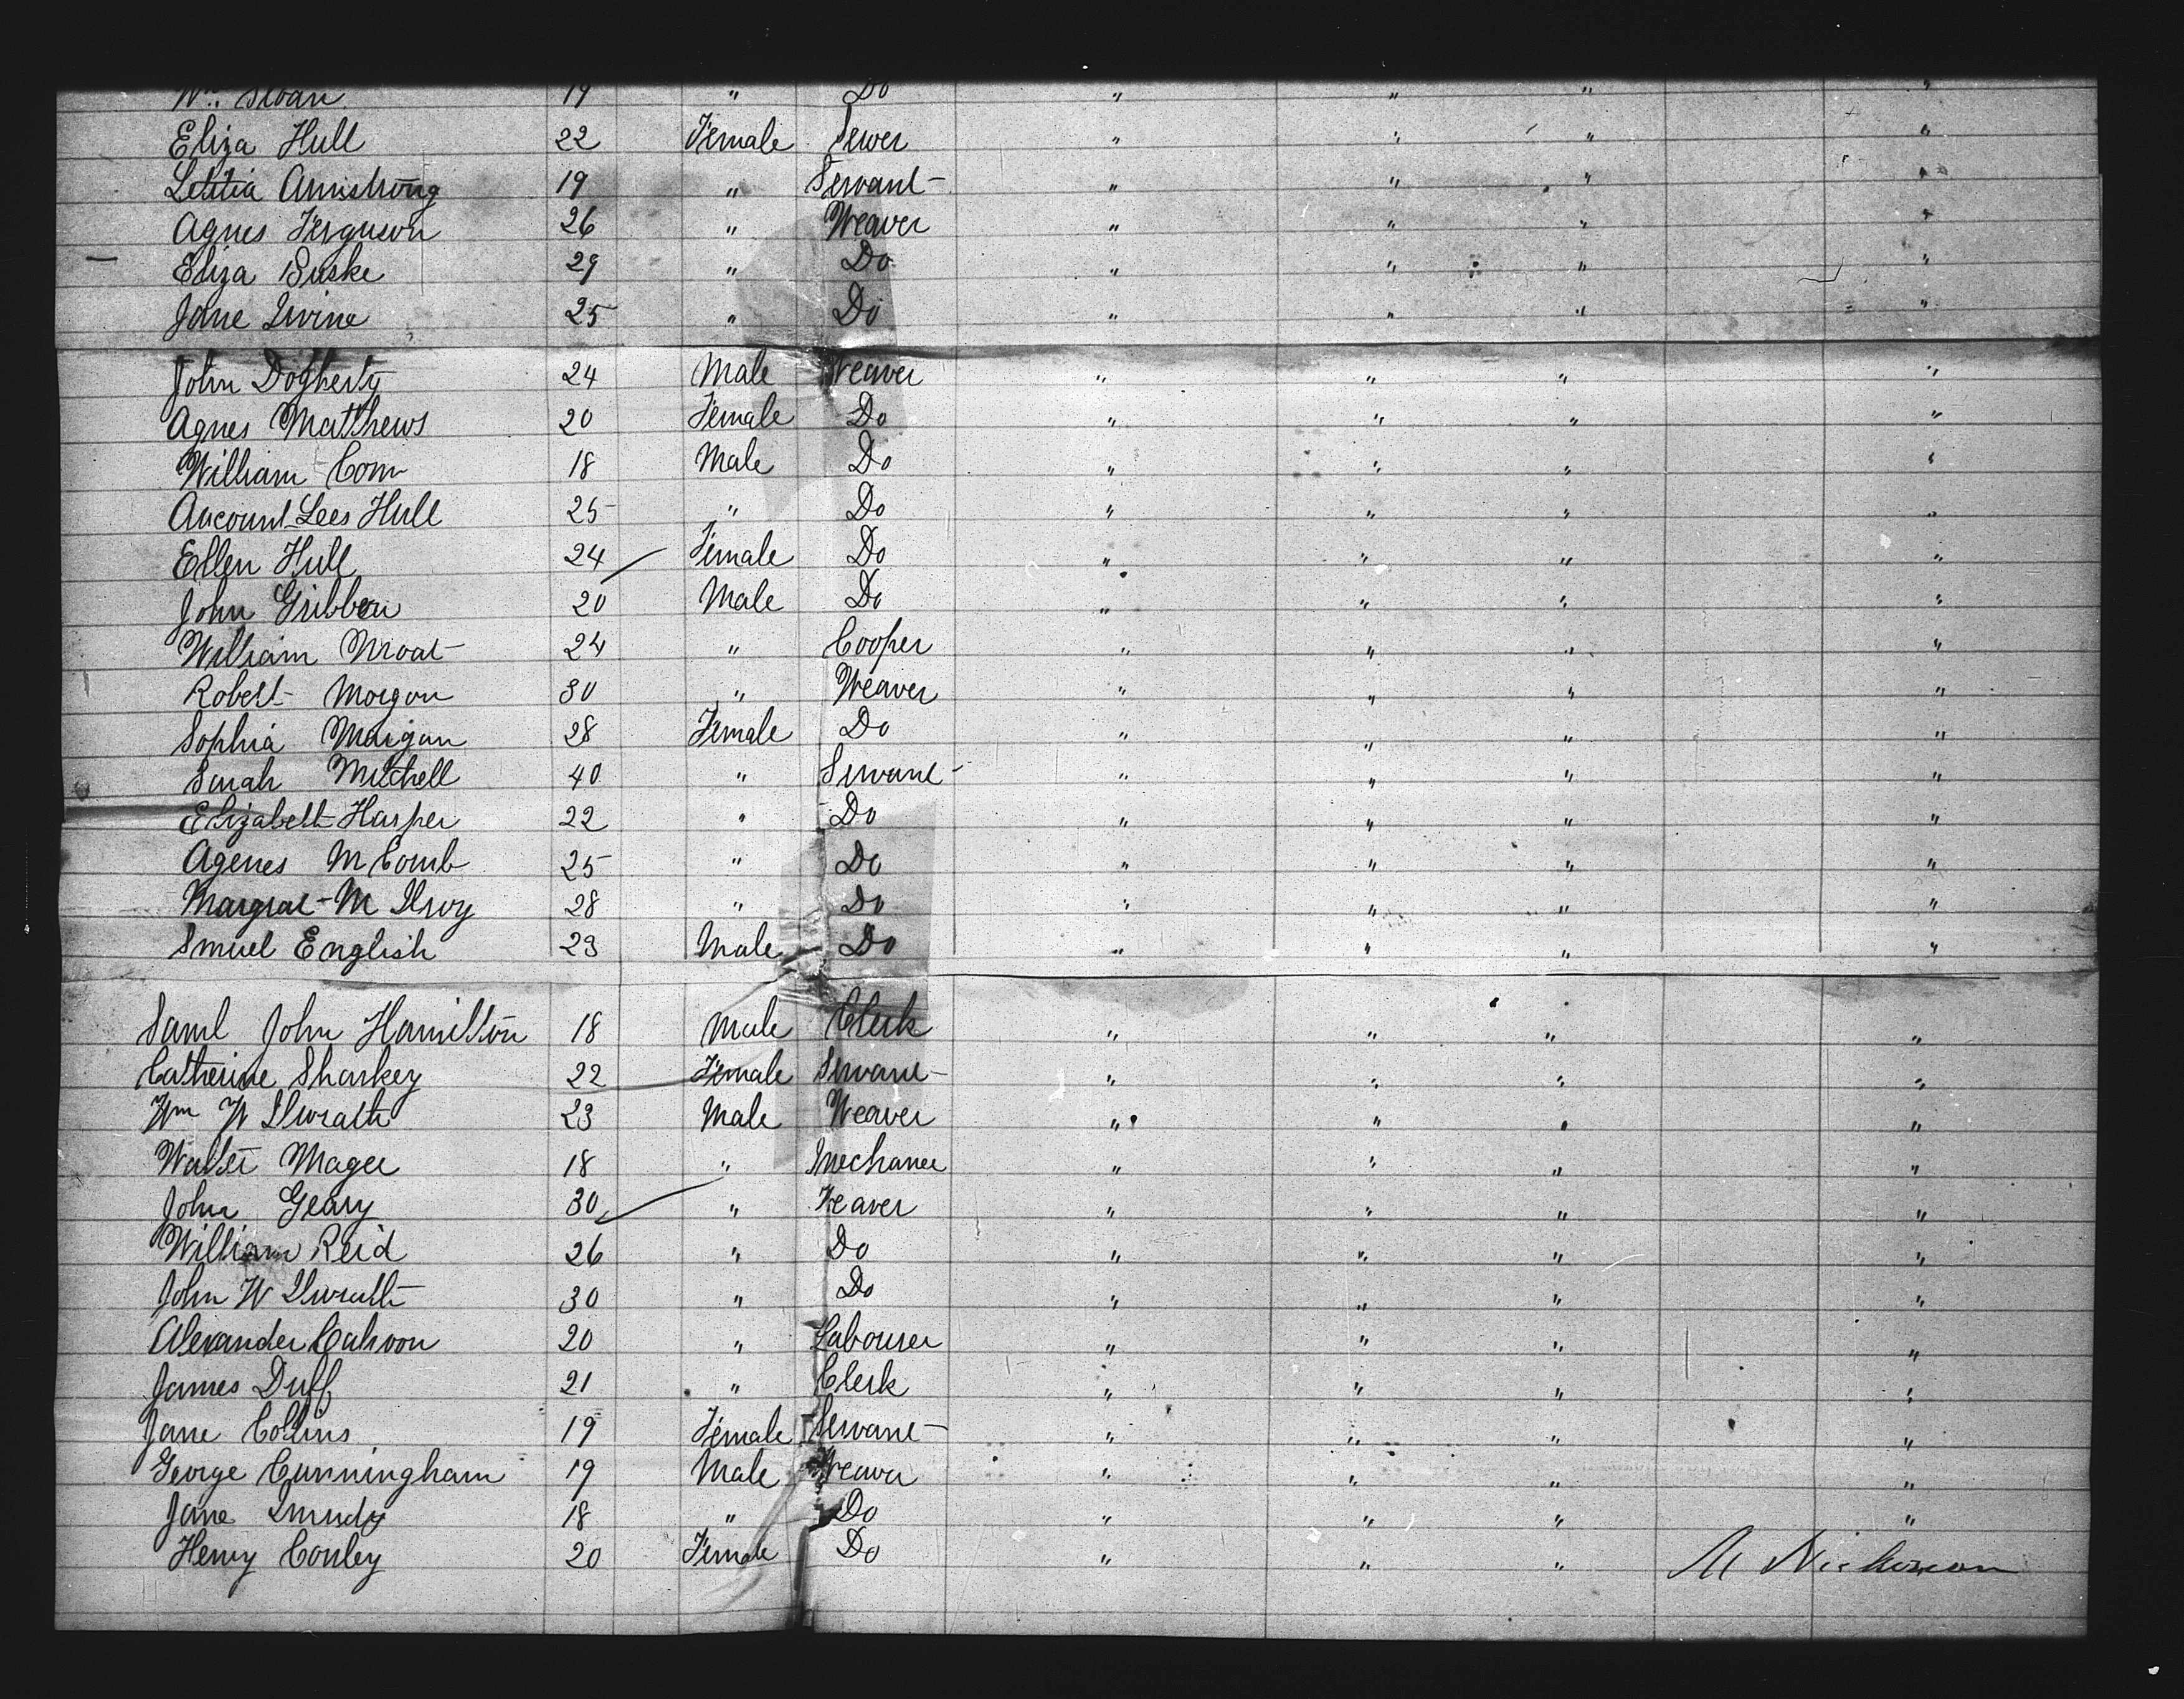 Wm. Sloan 19 " Do " " " "
Eliza Hull 22 Female Sewer " " " "
Letitia Armstrong 19 " Servant " " " "
Agnes Ferguson 26 " Weaver " " " "
Eliza Buske 29 " Do " " " "
Jane Irvine 25 " Do " " " "
John Dogherty 24 Male Weaver " " " "
Agnes Matthews 20 Female Do " " " "
William Com 18 Male Do " " " "
Lees Hull 25 " Do " " " "
Ellen Hull 24 Female Do " " " "
John Gribben 20 Male Do " " " "
William Moat 24 " Cooper " " " "
Robert Morgan 30 " Weaver " " " "
Sophia Morgan 28 Female Do " " " "
Sarah Mitchell 40 " Servant " " " "
Elizabeth Harper 22 " Do " " " "
Agenes M Comb 25 " Do " " " "
Margrat M Ilroy 28 " Do " " " "
Smuel English 23 Male Do " " " "
Saml John Hamilton 18 Male Clerk " " " "
Catherine Sharkey 22 Female Servant " " " "
Wm W Ilwrath 23 Male Weaver " " " "
Walter Magee 18 " " " " "
John Geary 30 " Weaver " " " "
William Reid 26 " Do " " " "
John W Ilwrath 30 " Do " " " "
Alexander Cahoon 20 " Labourer " " " "
James Duff 21 " Clerk " " " "
Jane Collins 19 Female Servant " " " "
George Cunningham 19 Male Weaver " " " "
Jane 18 " Do " " " "
Henry Conley 20 Female Do " " " M Nickerson